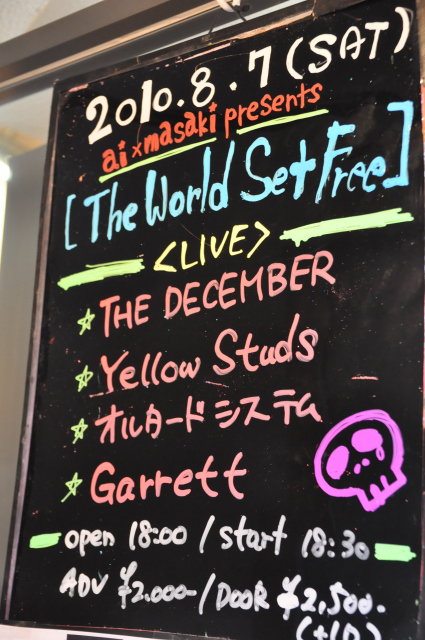 2010.8.7 (SAT)
ai×masaki presents
[The World Set Free]
<LIVE>
☆ THE DECEMBER
☆ Yellow Studs
☆ オルタードシステム
☆ Garrett
open 18:00 / start 18:30
ADV ¥2.000- / DOOR ¥2,500-
(+1D)